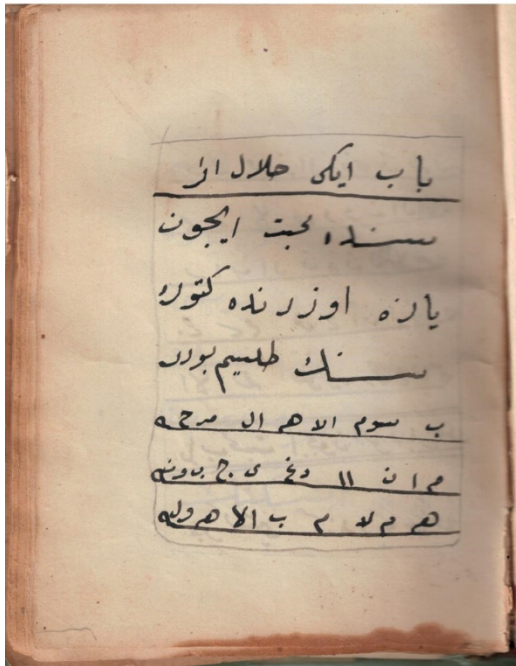 باب ایکی حلال ار
سنده محبت ایچون
یازه اوزرنده کتوره
سنك طلسیم بودر
ب سوم الا هر ال مرحه
م ا ن ۱۱ دغ ی ج
هر م لا م ب الا هر